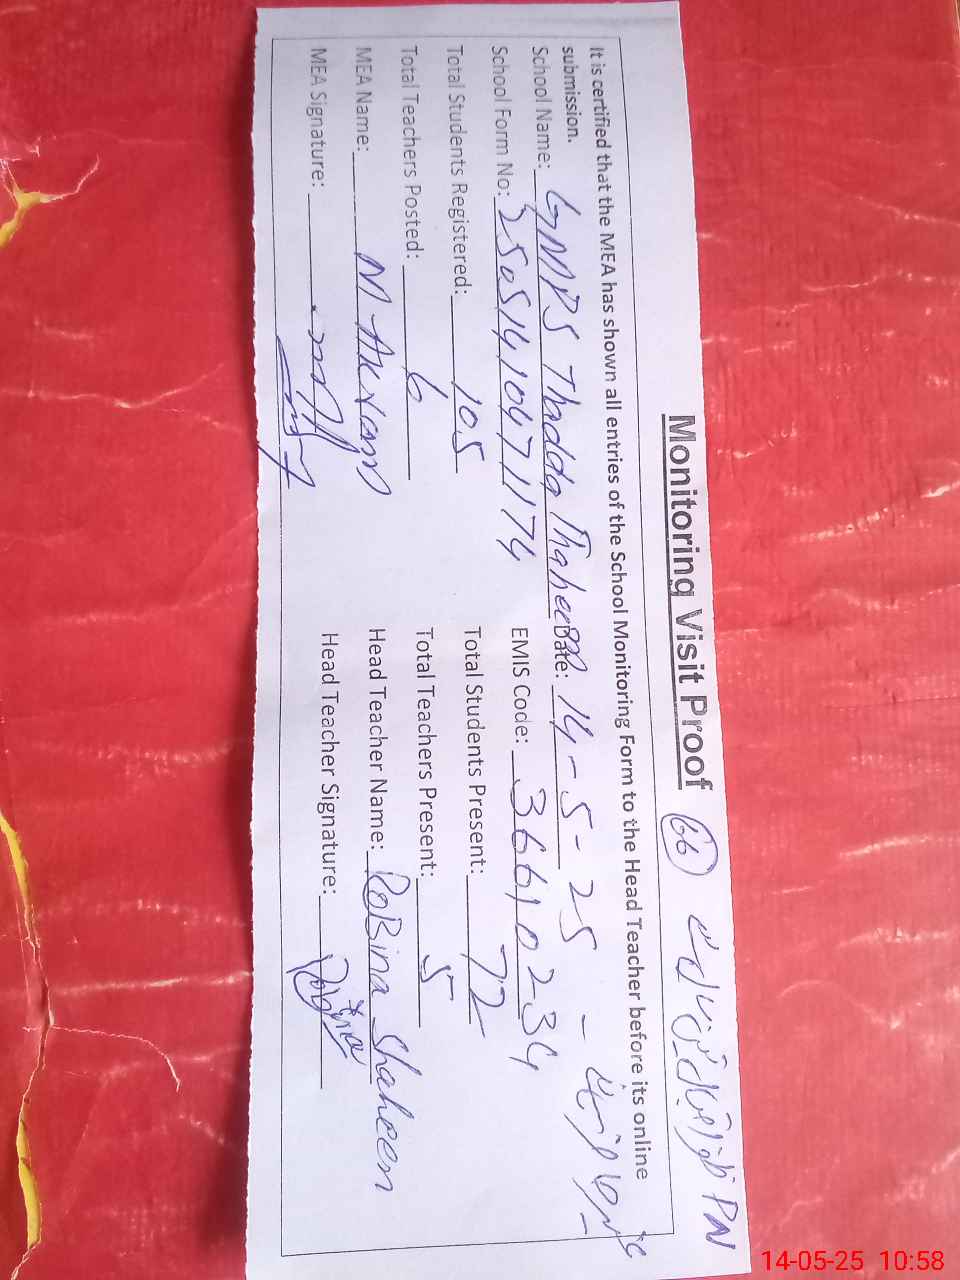 Monitoring Visit Proof 66
PN
It is certified that the MEA has shown all entries of the School Monitoring Form to the Head Teacher before its online
submission.
School Name: GMPS Thadda Thaheem Date: 14-5-25
School Form No: 25051410471174 EMIS Code: 36610234
Total Students Registered: 105 Total Students Present: 72
Total Teachers Posted: 6 Total Teachers Present: 5
MEA Name: M Akram Head Teacher Name: Robina Shaheen
MEA Signature: Head Teacher Signature: Robina
14-05-25 10:58